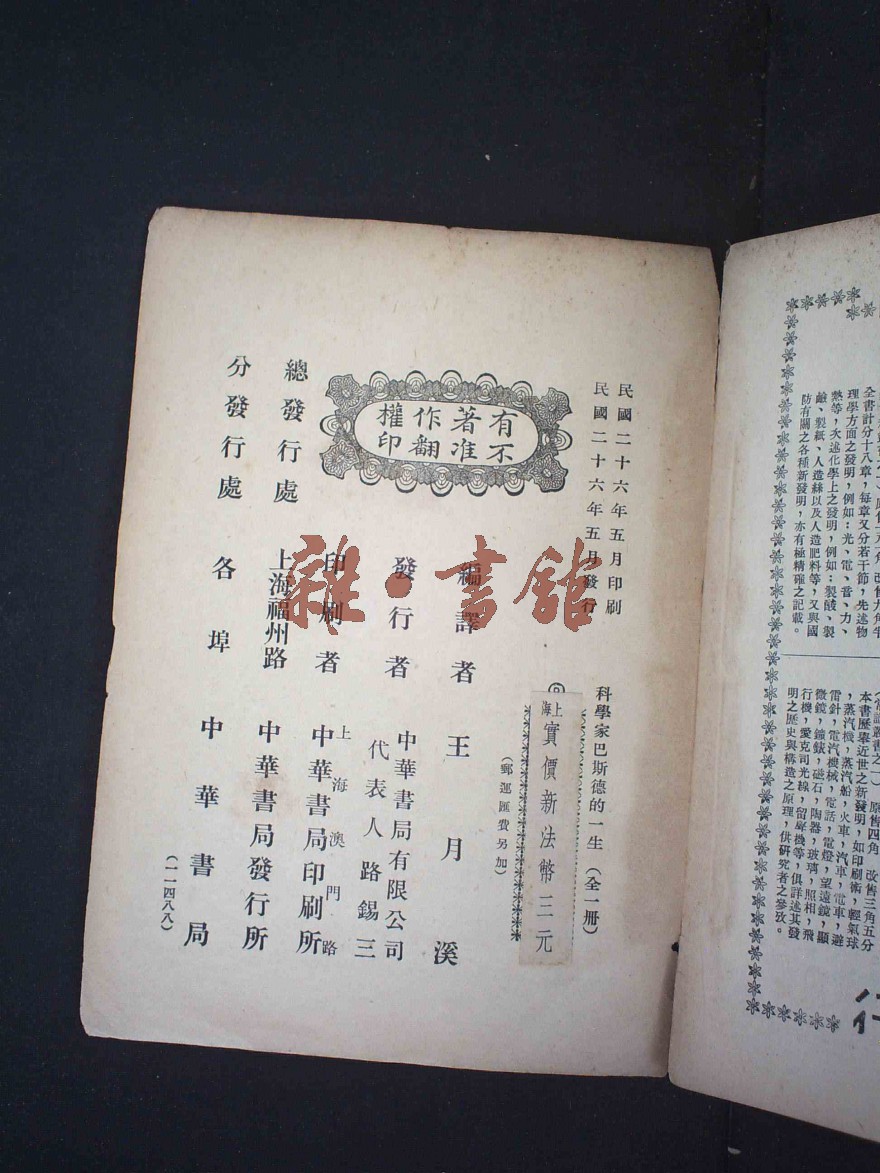 民國二十六年五月印刷
民國二十六年五月發行
科學家巴斯德的一生(全一册)
上海
實價新法幣三元
(郵運匯費另加)
有著作權
不准翻印
編譯者 王月溪
發行者 中華書局有限公司
代表人路錫三
印刷者 上海澳門路
中華書局印刷所
總發行處 上海福州路 中華書局發行所
分發行處 各埠 中華書局
(一一四八八)
雜·書館
全書計分十八章,每章又分若干節,先述物
理學方面之發明,例如:光、電、音、力、
熱等,次述化學上之發明,例如:製酸、製
鹼、製紙、人造絲以及人造肥料等,又與國
防有關之各種新發明,亦有極精確之記載。
原售四角 改售三角五分
本書歷舉近世之新發明,如印刷術,輕氣球
,蒸汽機,蒸汽船,火車,汽車,電車,避
雷針,電汽機械,電話,電燈,望遠鏡,顯
微鏡,鐘錶,磁石,陶器,玻璃,照相,飛
行機,愛克司光線,留聲機等,俱詳述其發
明之歷史與構造之原理,供研究者之參攷。
行